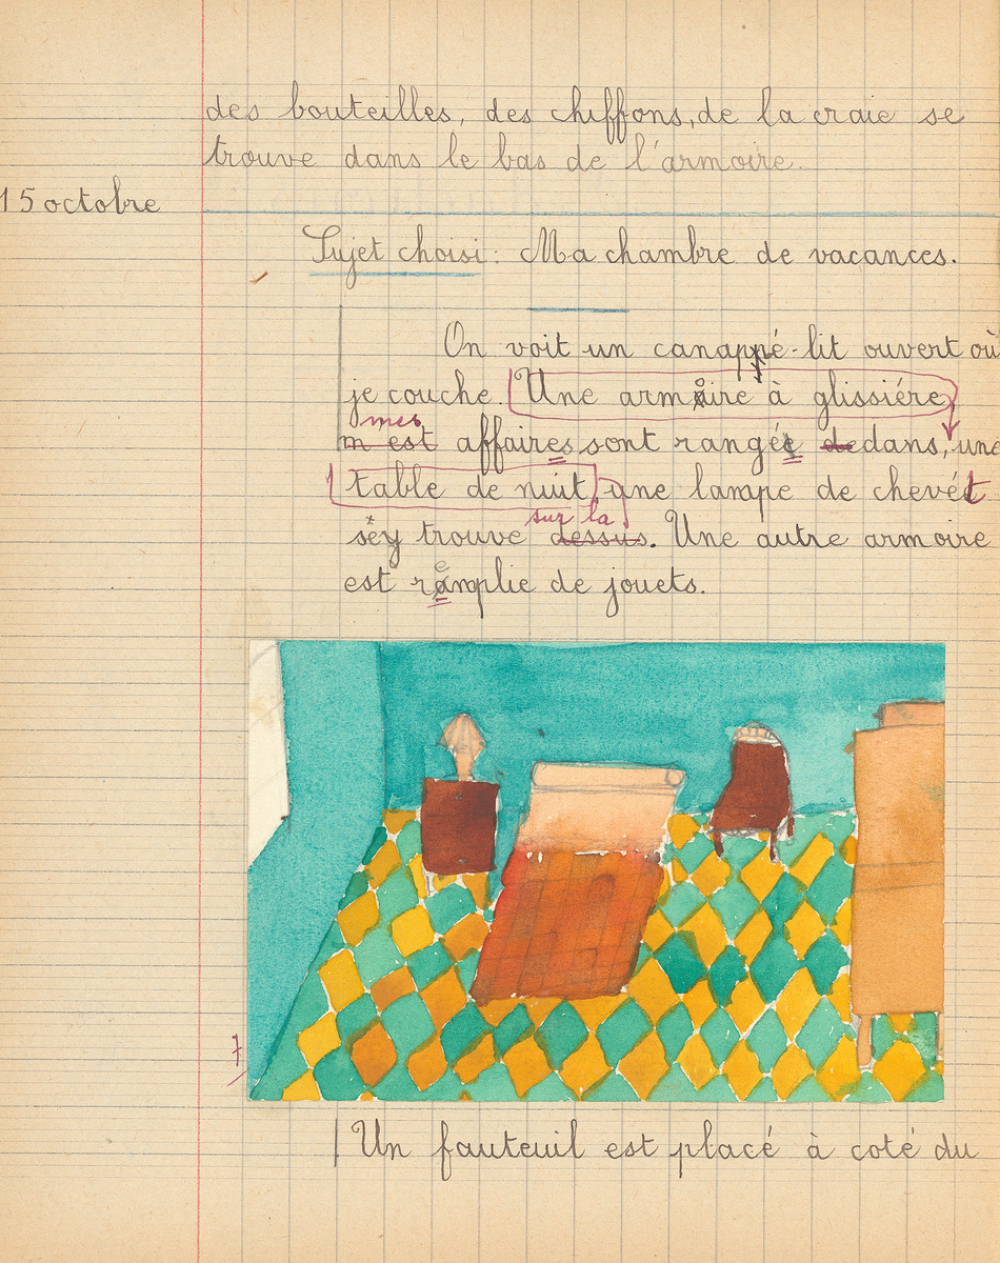 des bouteilles, des chiffons, de la craie se
trouve dans le bas de l'armoire.
15 octobre
Sujet choisi : Ma chambre de vacances.
On voit un canappé-lit ouvert où
je couche. Une armoire à glissiére
mes
m est affaires sont rangées de dedans, une
table de nuit, une lampe de chevet
sur la
s'éy trouve dessus. Une autre armoire
e
est ramplie de jouets.
Un fauteuil est placé à coté du